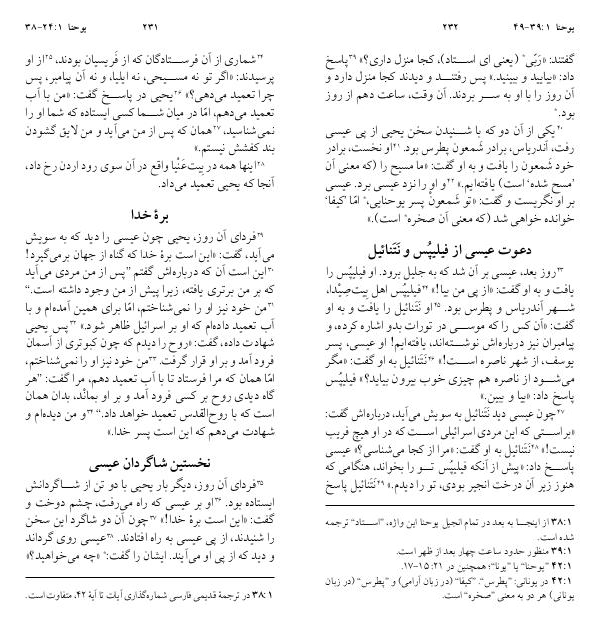 یوحنا ۱:‏۲۴-۳۸ ۲۳۱
۲۴شماری از آن فرستادگان که از فَریسیان بودند، ۲۵از او
پرسیدند: «اگر تو نه مسیحی، نه ایلیا، و نه آن پیامبر، پس
چرا تعمید می‌دهی؟» ۲۶یحیی در پاسخ گفت: «من با آب
تعمید می‌دهم، امّا در میان شما کسی ایستاده که شما او را
نمی‌شناسید، ۲۷همان که پس از من می‌آید و من لایق گشودن
بند کفشش نیستم.»
۲۸اینها همه در بِیت‌عَنْیا واقع در آن سوی رود اردن رخ داد،
آنجا که یحیی تعمید می‌داد.
برۀ خدا
۲۹فردای آن روز، یحیی چون عیسی را دید که به سویش
می‌آید، گفت: «این است برۀ خدا که گناه از جهان برمی‌گیرد!
۳۰این است آن که درباره‌اش گفتم ”پس از من مردی می‌آید
که بر من برتری یافته، زیرا پیش از من وجود داشته است.“
۳۱من خود نیز او را نمی‌شناختم، امّا برای همین آمده‌ام و با
آب تعمید داده‌ام که او بر اسرائیل ظاهر شود.» ۳۲پس یحیی
شهادت داده، گفت: «روح را دیدم که چون کبوتری از آسمان
فرود آمد و بر او قرار گرفت. ۳۳من خود نیز او را نمی‌شناختم،
امّا همان که مرا فرستاد تا با آب تعمید دهم، مرا گفت: ”هر
گاه دیدی روح بر کسی فرود آمد و بر او بماند، بدان همان
است که با روح‌القدس تعمید خواهد داد.“ ۳۴و من دیده‌ام و
شهادت می‌دهم که این است پسر خدا.»
نخستین شاگردان عیسی
۳۵فردای آن روز، دیگر بار یحیی با دو تن از شاگردانش
ایستاده بود. ۳۶او بر عیسی که راه می‌رفت، چشم دوخت و
گفت: «این است برۀ خدا!» ۳۷چون آن دو شاگرد این سخن
را شنیدند، از پی عیسی به راه افتادند. ۳۸عیسی روی گرداند
و دید که از پی او می‌آیند. ایشان را گفت:* «چه می‌خواهید؟»
۱:‏۳۸ در ترجمۀ قدیمی فارسی شماره‌گذاری آیات تا آیۀ ۴۲، متفاوت است.
یوحنا ۱:‏۳۹-۴۹ ۲۳۲
گفتند: «رَبّی* (یعنی ای استاد)، کجا منزل داری؟» ۳۹پاسخ
داد: «بیایید و ببینید.» پس رفتند و دیدند کجا منزل دارد و
آن روز را با او به سر بردند. آن وقت، ساعت دهم از روز
بود.*
۴۰یکی از آن دو که با شنیدن سخن یحیی از پی عیسی
رفت، آندریاس، برادر شَمعون پطرس بود. ۴۱او نخست، برادر
خود شَمعون را یافت و به او گفت: «ما مسیح را (که معنی آن
’مسح شده‘ است) یافته‌ایم.» ۴۲و او را نزد عیسی برد. عیسی
بر او نگریست و گفت: «تو شَمعون پسر یوحنایی،* امّا ’کیفا‘
خوانده خواهی شد (که معنی آن صخره* است).»
دعوت عیسی از فیلیپُس و نَتَنائیل
۴۳روز بعد، عیسی بر آن شد که به جلیل برود. او فیلیپُس را
یافت و به او گفت: «از پی من بیا!» ۴۴فیلیپُس اهل بِیت‌صِیْدا،
شهر آندریاس و پطرس بود. ۴۵او نَتَنائیل را یافت و به او
گفت: «آن کس را که موسی در تورات بدو اشاره کرده، و
پیامبران نیز درباره‌اش نوشته‌اند، یافته‌ایم! او عیسی، پسر
یوسف، از شهر ناصره است!» ۴۶نَتَنائیل به او گفت: «مگر
می‌شود از ناصره هم چیزی خوب بیرون بیاید؟» فیلیپُس
پاسخ داد: «بیا و ببین.»
۴۷چون عیسی دید نَتَنائیل به سویش می‌آید، درباره‌اش گفت:
«براستی که این مردی اسرائیلی است که در او هیچ فریب
نیست!» ۴۸نَتَنائیل به او گفت: «مرا از کجا می‌شناسی؟» عیسی
پاسخ داد: «پیش از آنکه فیلیپُس تو را بخواند، هنگامی که
هنوز زیر آن درخت انجیر بودی، تو را دیدم.» ۴۹نَتَنائیل پاسخ
۱:‏۳۸ از اینجا به بعد در تمام انجیل یوحنا این واژه، ”استاد“ ترجمه
شده است.
۱:‏۳۹ منظور حدود ساعت چهار بعد از ظهر است.
۱:‏۴۲ ”یوحنا“ یا ”یونا“؛ همچنین در ۲۱:‏۱۵-۱۷.
۱:‏۴۲ در یونانی: ”پطرس“. ”کیفا“ (در زبان آرامی) و ”پطرس“ (در زبان
یونانی) هر دو به معنی ”صخره“ است.